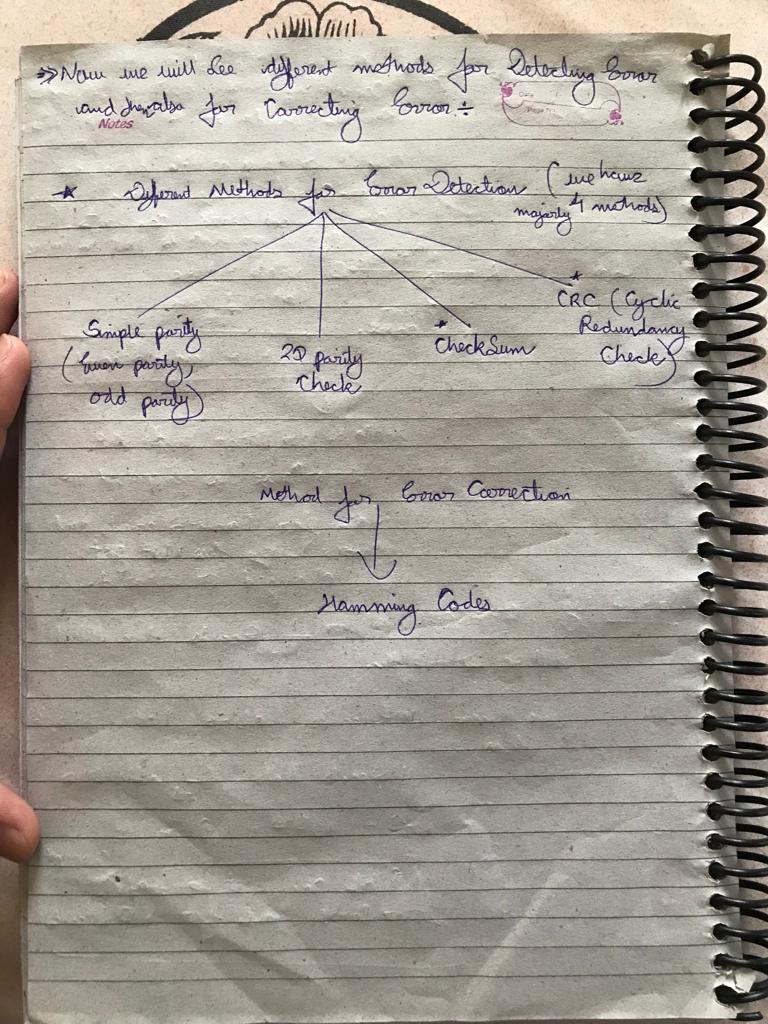 ⇒ Now we will See different methods for Detecting Error
and then also for Correcting Error ÷
Notes
Date
Page No.
* Different Methods for Error Detection (we have
majorly 4 methods)
Simple parity
(Even parity,
odd parity)
2D parity
Check
* CheckSum
* CRC (Cyclic
Redundancy
Check)
Method for Error Correction
Hamming Codes